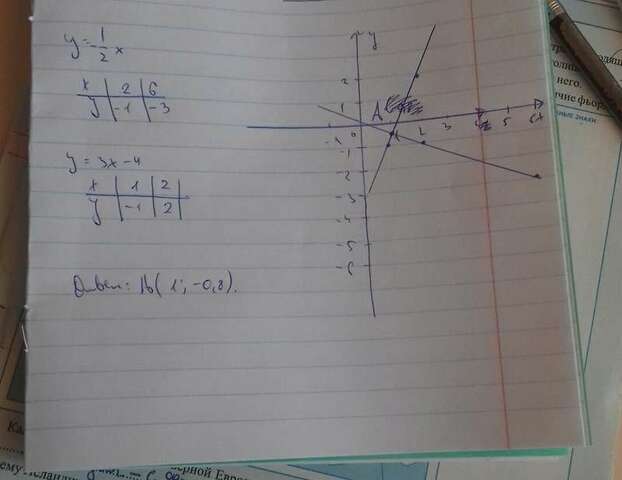 y = -1/2 x
x | 2 | 6
y | -1 | -3
y = 3x - 4
x | 1 | 2
y | -1 | 2
Ответ: A(1; -0,8).
y
2
1
A
-1 0 1 2 3 4 5 x
-1
-2
-3
-4
-5
-6
него.
ные знаки
рной Евро